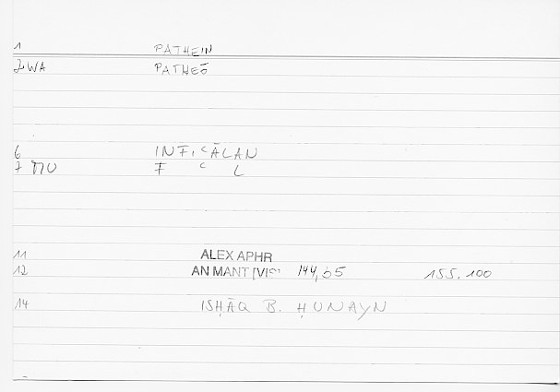 1 PATHEIN
2 WA PATHEŌ
6 INFIʿĀLAN
7 F ʿ L
11 ALEX APHR
12 AN MANT [VIS] 144, 5 155.100
14 ISḤĀQ B. ḤUNAYN